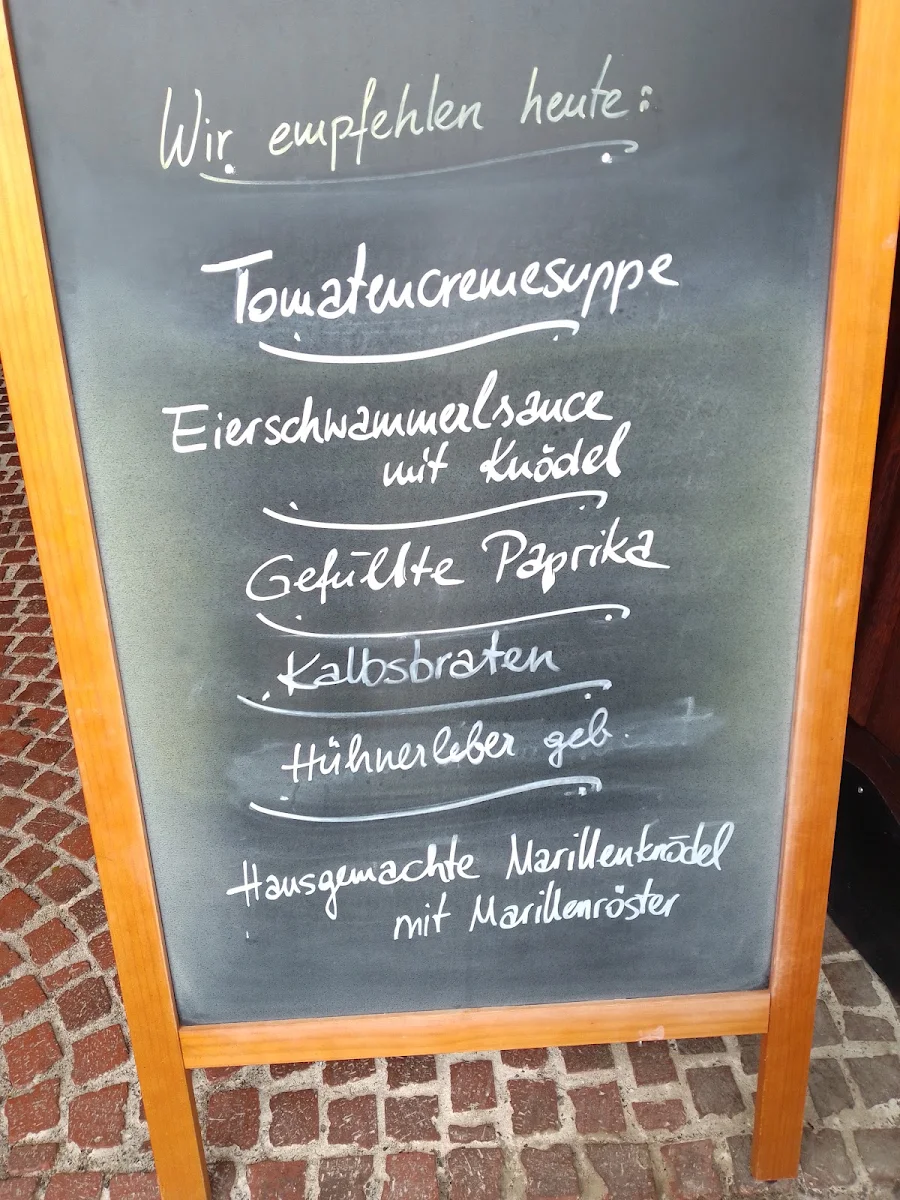 Wir empfehlen heute:
Tomatencremesuppe
Eierschwammerlsauce
mit Knödel
Gefüllte Paprika
Kalbsbraten
Hühnerleber geb.
Hausgemachte Marillenknödel
mit Marillenröster